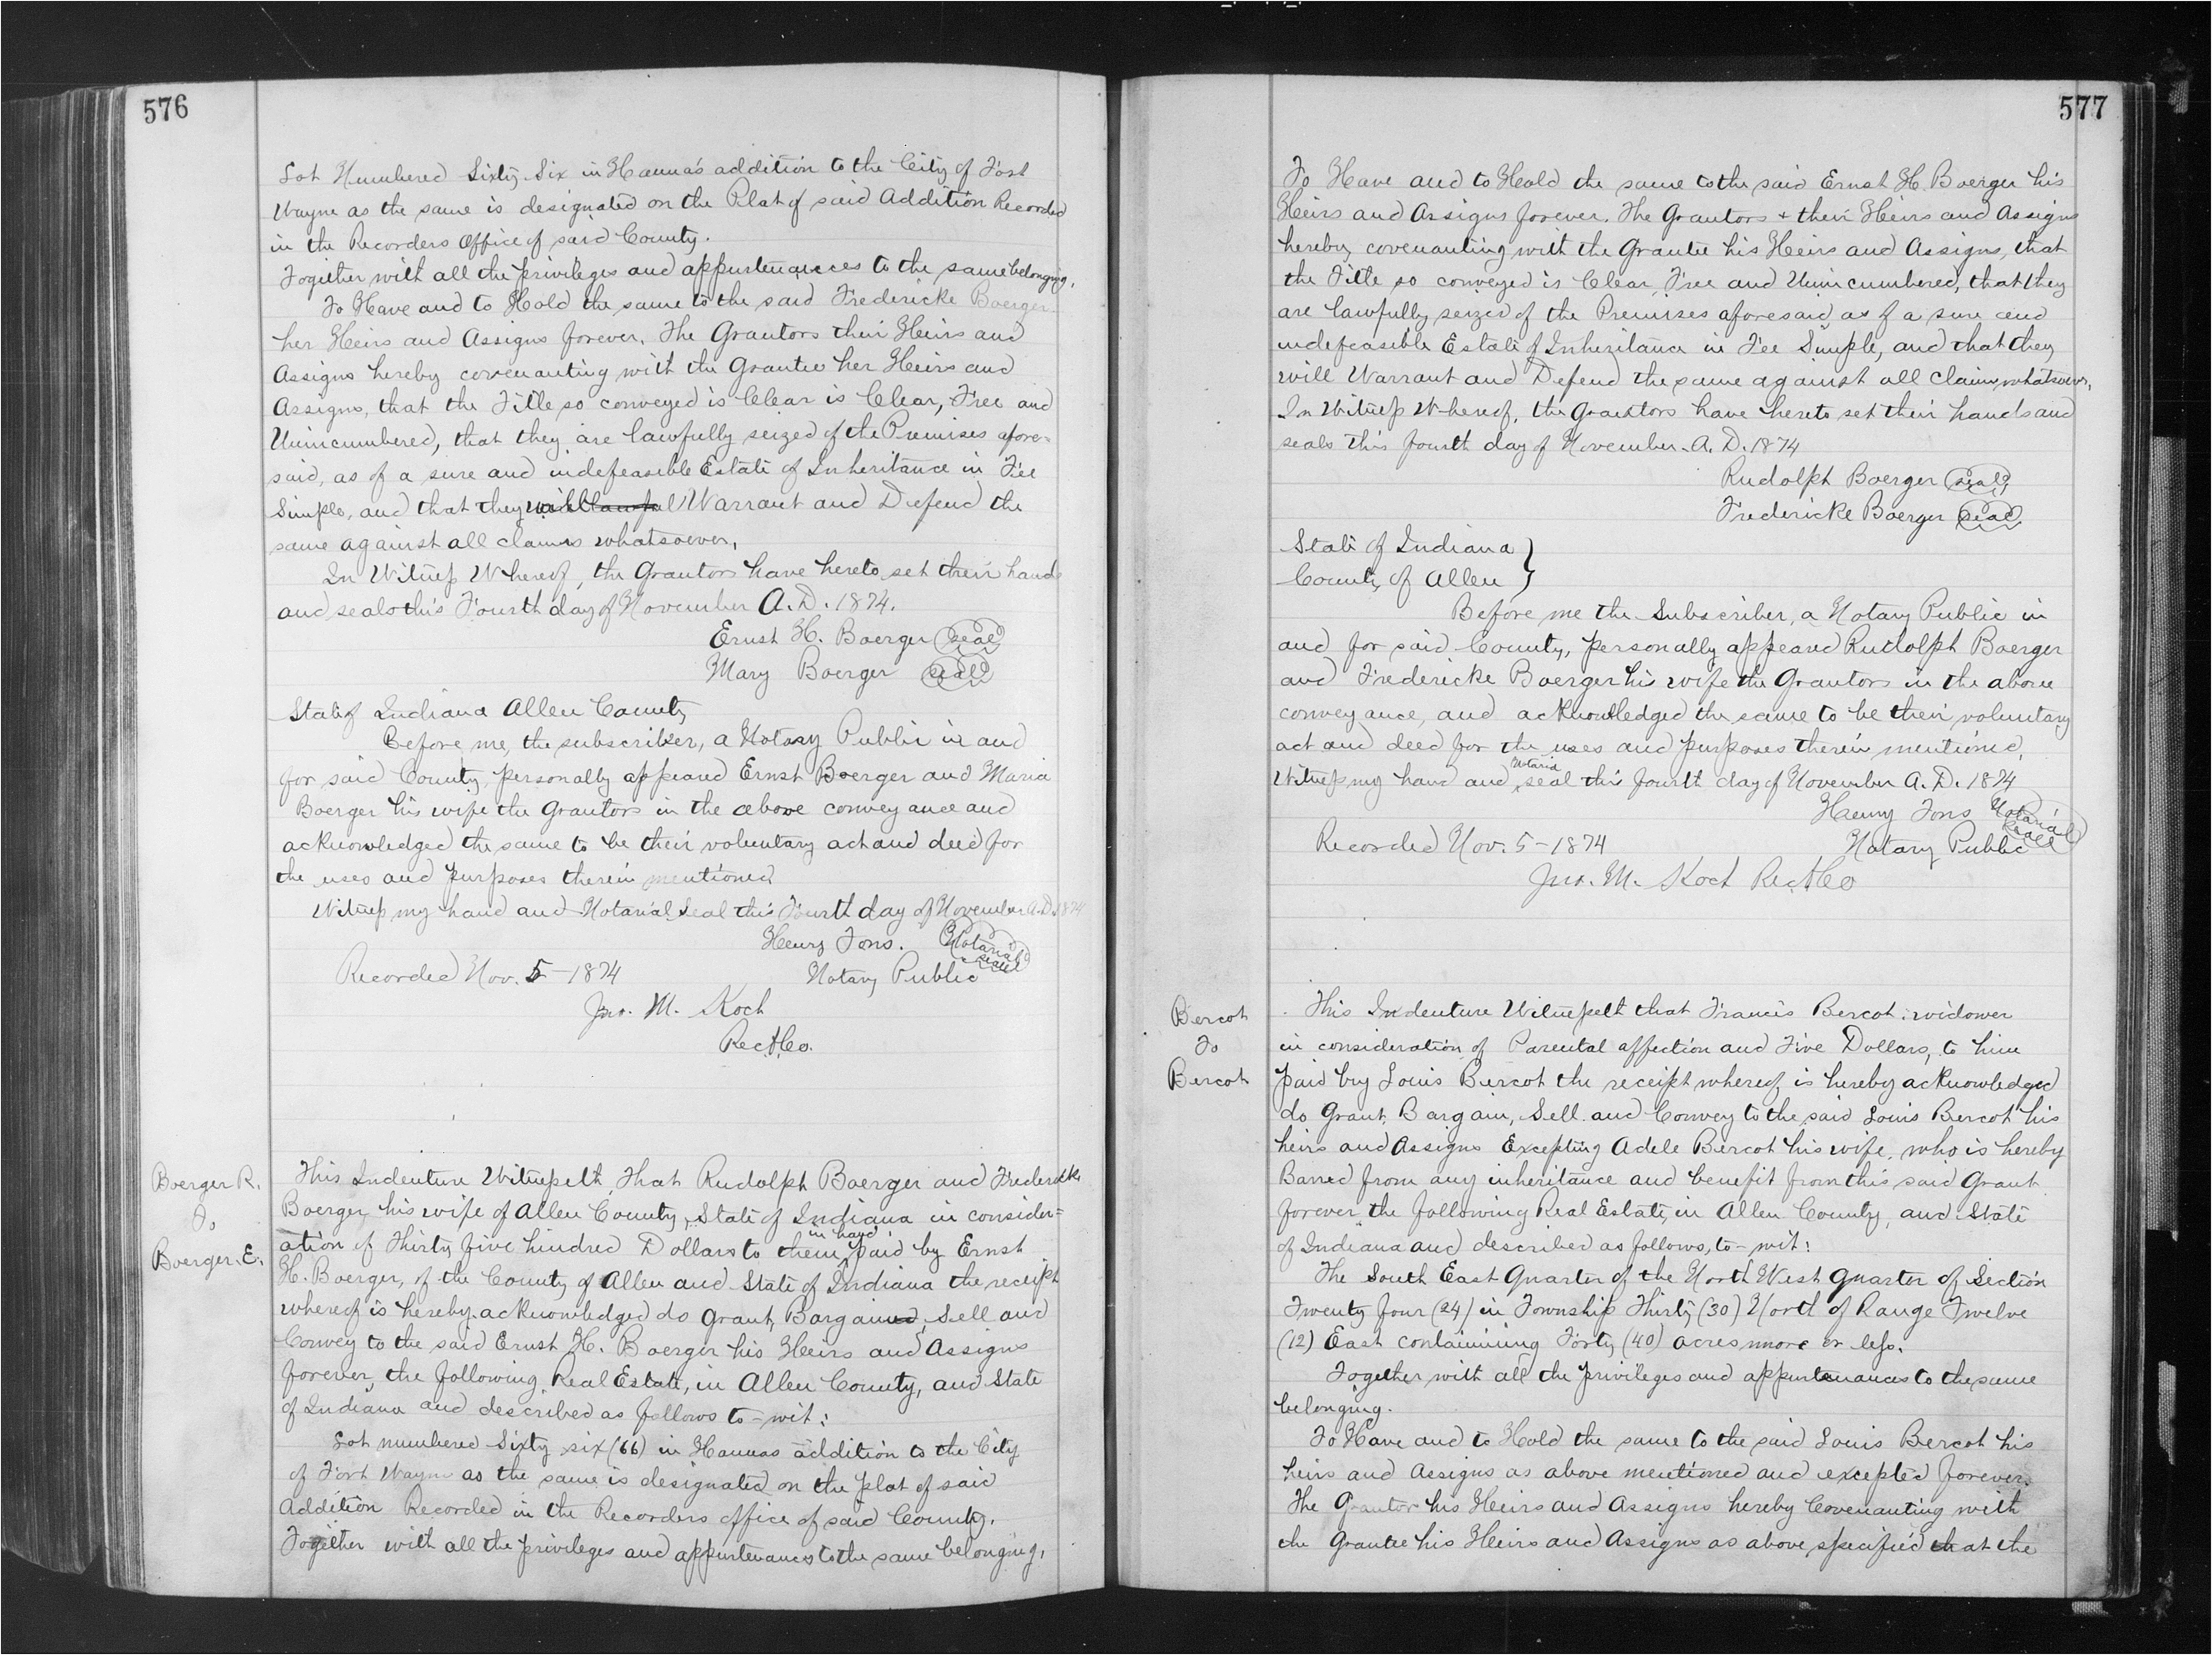 576
Lot Numbered Sixty Six in Hanna's addition to the City of Fort
Wayne as the same is designated on the Plat of said Addition Recorded
in the Recorders Office of said County.
Together with all the privileges and appurtenances to the same belonging,
To Have and to Hold the same to the said Fredericke Boerger
her Heirs and Assigns forever. The Grantors their Heirs and
Assigns hereby covenanting with the Grantee her Heirs and
Assigns, that the Title so conveyed is Clear is Clear, Free and
Unincumbered, that they are lawfully seized of the Premises afore=
said, as of a sure and indefeasible Estate of Inheritance in Fee
Simple, and that they will Warrant and Defend the
same against all claims whatsoever,
In Witness Whereof, the Grantors have hereto set their hands
and seals this Fourth day of November A.D. 1874.
Ernst H. Boerger (seal)
Mary Boerger (seal)
State of Indiana Allen County
Before me, the subscriber, a Notary Public in and
for said County, personally appeared Ernst Boerger and Maria
Boerger his wife the Grantors in the above conveyance and
acknowledged the same to be their voluntary act and deed for
the uses and purposes therein mentioned
Witness my hand and Notarial Seal this Fourth day of November A.D. 1874
Henry Tons. (Notarial seal)
Recorded Nov. 5-1874 Notary Public
Jno. M. Koch
RecACo.
Boerger R.
To
Boerger. E.
This Indenture Witnesseth, That Rudolph Boerger and Fredericke
Boerger his wife of Allen County, State of Indiana in consider=
ation of Thirty five hundred Dollars to them in hand paid by Ernst
H. Boerger, of the County of Allen and State of Indiana the receipt
whereof is hereby acknowledged do Grant, Bargained, Sell and
Convey to the said Ernst H. Boerger his Heirs and Assigns
forever, the following Real Estate, in Allen County, and State
of Indiana and described as follows to-wit:
Lot numbered Sixty six (66) in Hannas addition to the City
of Fort Wayne as the same is designated on the plat of said
Addition Recorded in the Recorders office of said County.
Together with all the privileges and appurtenances to the same belonging,
577
To Have and to Hold the same to the said Ernst H. Boerger his
Heirs and Assigns forever. The Grantors + their Heirs and Assigns
hereby covenanting with the Grantee his Heirs and Assigns, that
the Title so conveyed is Clear, Free and Unincumbered, that they
are lawfully seized of the Premises aforesaid as of a sure and
indefeasible Estate of Inheritance in Fee Simple, and that they
will Warrant and Defend the same against all claims whatsoever,
In Witness Whereof, the Grantors have hereto set their hands and
seals this fourth day of November. A.D. 1874
Rudolph Boerger (seal)
Fredericke Boerger (seal)
State of Indiana }
County of Allen }
Before me the Subscriber, a Notary Public in
and for said County, personally appeared Rudolph Boerger
and Fredericke Boerger his wife the Grantors in the above
conveyance, and acknowledged the same to be their voluntary
act and deed for the uses and purposes therein mentioned,
Witness my hand and Notarial seal this fourth day of November A.D. 1874
Henry Tons (Notarial Seal)
Recorded Nov. 5-1874 Notary Public
Jno. M. Koch RecACo
Bercot
To
Bercot
This Indenture Witnesseth that Francis Bercot widower
in consideration of Parental affection and Five Dollars, to him
paid by Louis Bercot the receipt whereof is hereby acknowledged
do Grant, Bargain, Sell and Convey to the said Louis Bercot his
heirs and Assigns Excepting Adele Bercot his wife, who is hereby
Barred from any inheritance and benefit from this said Grant
forever the following Real Estate, in Allen County, and State
of Indiana and described as follows, to-wit:
The South East Quarter of the North West Quarter of Section
Twenty four (24) in Township Thirty (30) North of Range Twelve
(12) East containining Forty (40) acres more or less.
Together with all the privileges and appurtenances to the same
belonging.
To Have and to Hold the same to the said Louis Bercot his
heirs and Assigns as above mentioned and excepted forever.
The Grantor his Heirs and Assigns hereby Covenanting with
the Grantee his Heirs and Assigns as above specified that the